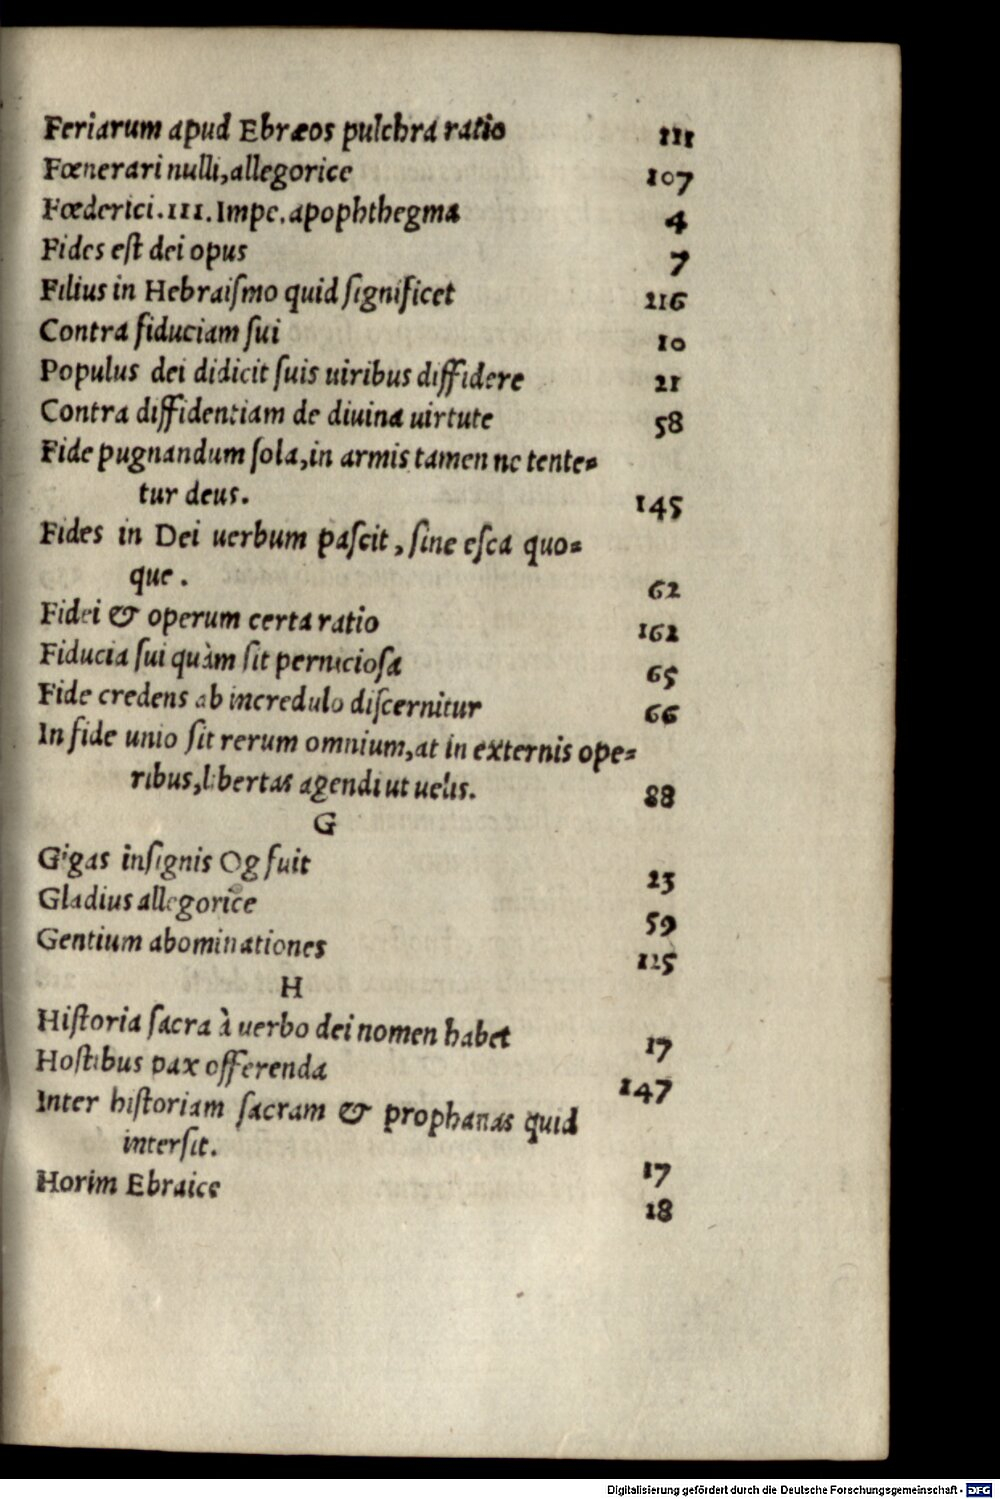 Feriarum apud Ebræos pulchra ratio 111
Fœnerari nulli, allegorice 107
Fœderici .III. Impe. apophthegma 4
Fides eſt dei opus 7
Filius in Hebraiſmo quid ſignificet 116
Contra fiduciam ſui 10
Populus dei didicit ſuis uiribus diffidere 21
Contra diffidentiam de diuina uirtute 58
Fide pugnandum ſola, in armis tamen ne tente=
tur deus. 145
Fides in Dei uerbum paſcit, ſine eſca quo=
que. 62
Fidei & operum certa ratio 162
Fiducia ſui quàm ſit pernicioſa 65
Fide credens ab incredulo diſcernitur 66
In fide unio ſit rerum omnium, at in externis ope=
ribus, libertas agendi ut uelis. 88
G
Gigas inſignis Og fuit 23
Gladius allegorice 59
Gentium abominationes 125
H
Hiſtoria ſacra à uerbo dei nomen habet 17
Hoſtibus pax offerenda 147
Inter hiſtoriam ſacram & prophanas quid
interſit. 17
Horim Ebraice 18
Digitalisierung gefördert durch die Deutsche Forschungsgemeinschaft - DFG